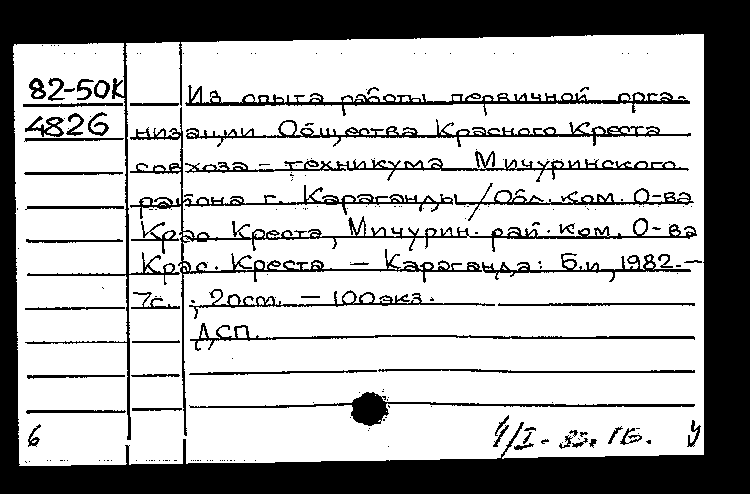 82-50К Из опыта работы первичной орга-
4826 низации Общества Красного Креста
совхоза-техникума Мичуринского
района г. Караганды / Обл. ком. О-ва
Крас. Креста, Мичурин. рай. ком. О-ва
Крас. Креста. - Караганда: Б.и, 1982. -
7с. ; 20cm. - 100экз.
ДСП.
6 4/I-83. ГБ. У